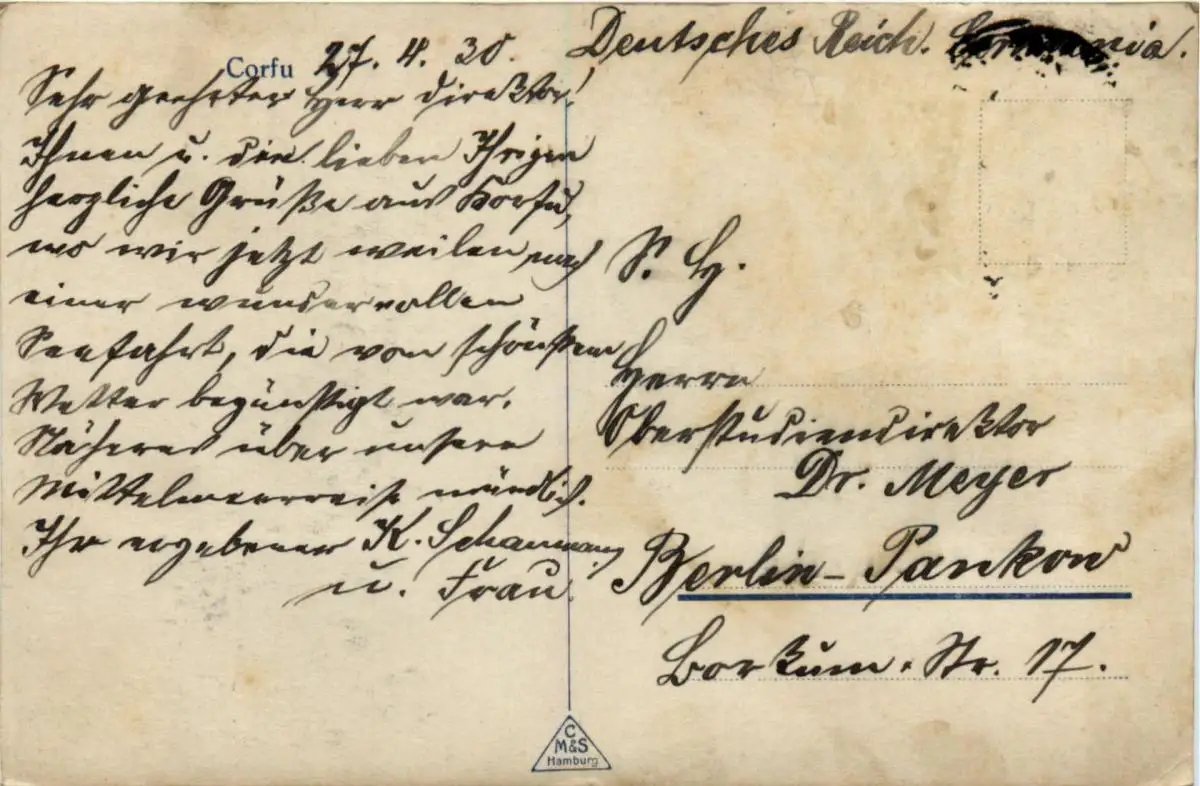 Corfu 27. 4. 30.
Sehr geehrter Herr Direktor!
Ihnen u. den lieben Ihrigen
herzliche Grüße aus Korfu,
wo wir jetzt weilen nach
einer wundervollen
Seefahrt, die vom schönsten
Wetter begünstigt war.
Näheres über unsere
Mittelmeerreise mündlich.
Ihr ergebener K. Schaumann
u. Frau.
Deutsches Reich. Germania.
S. H.
Herrn
Oberstudiendirektor
Dr. Meyer
Berlin-Pankow
Borkum-Str. 17.
C
M&S
Hamburg